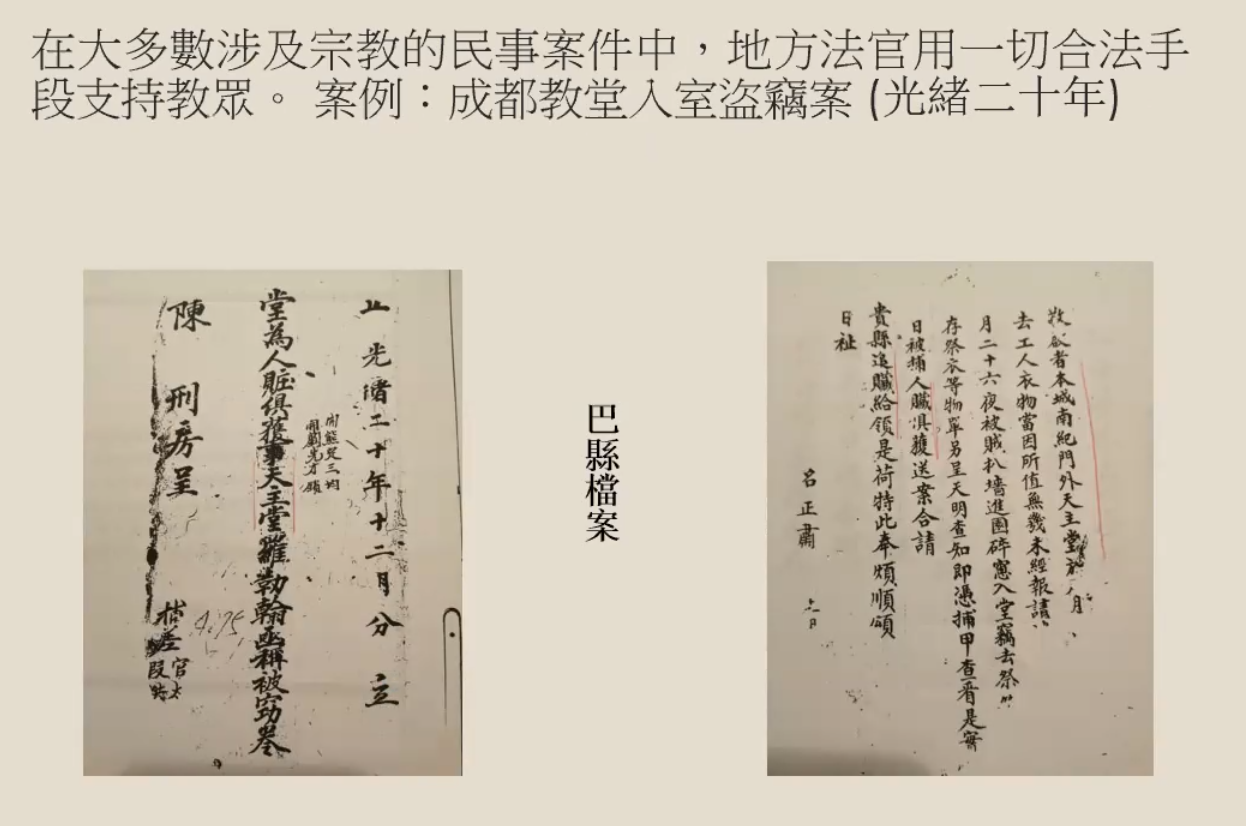 在大多數涉及宗教的民事案件中，地方法官用一切合法手
段支持教眾。 案例：成都教堂入室盜竊案 (光緒二十年)
光緒二十年十二月分 立
堂為人賍俱獲事天主堂羅勃翰函稱被窃卷
刑房呈
陳
巴縣檔案
敬啟者本城南紀門外天主堂於 月
去工人衣物當因所值無幾未經報請
月二十六夜被賊扒墻進園碎窓入堂竊去祭
存祭衣等物單另呈天明查知即憑捕甲查看是實
日被捕人贓俱獲送案合請
貴縣追贓給領是荷特此奉煩順頌
日祉
名正肅